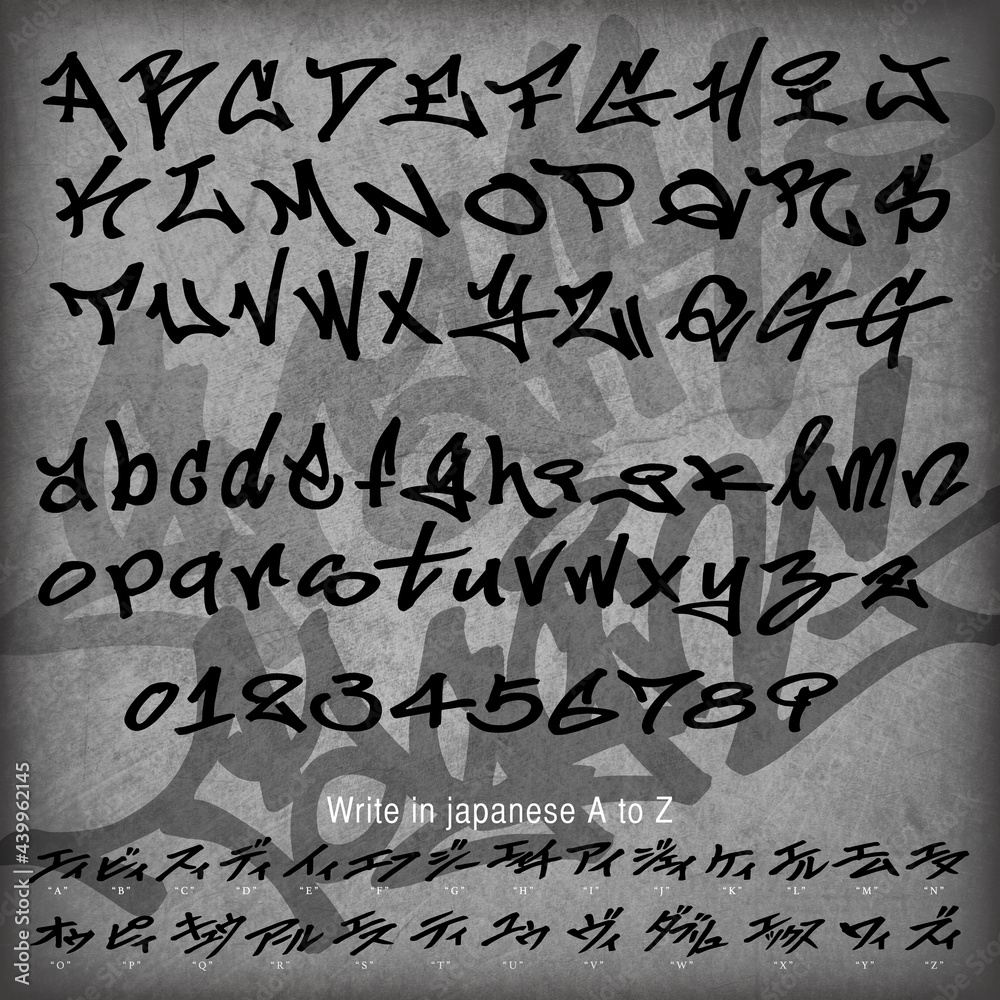 A B C D E F G H I J
K L M N O P Q R S
T U V W X Y Z Q G G
a b c d e f g h i j k l m n
o p q r s t u v w x y z z
0 1 2 3 4 5 6 7 8 9
Write in japanese A to Z
エィ ビィ スィ ディ イィ エフ ジー エイチ アイ ジェイ ケィ エル エム エヌ
“A” “B” “C” “D” “E” “F” “G” “H” “I” “J” “K” “L” “M” “N”
オゥ ピィ キュゥ アール エス ティ ユゥ ヴィ ダブリュ エックス ワィ ズィ
“O” “P” “Q” “R” “S” “T” “U” “V” “W” “X” “Y” “Z”
Adobe Stock | #439962145